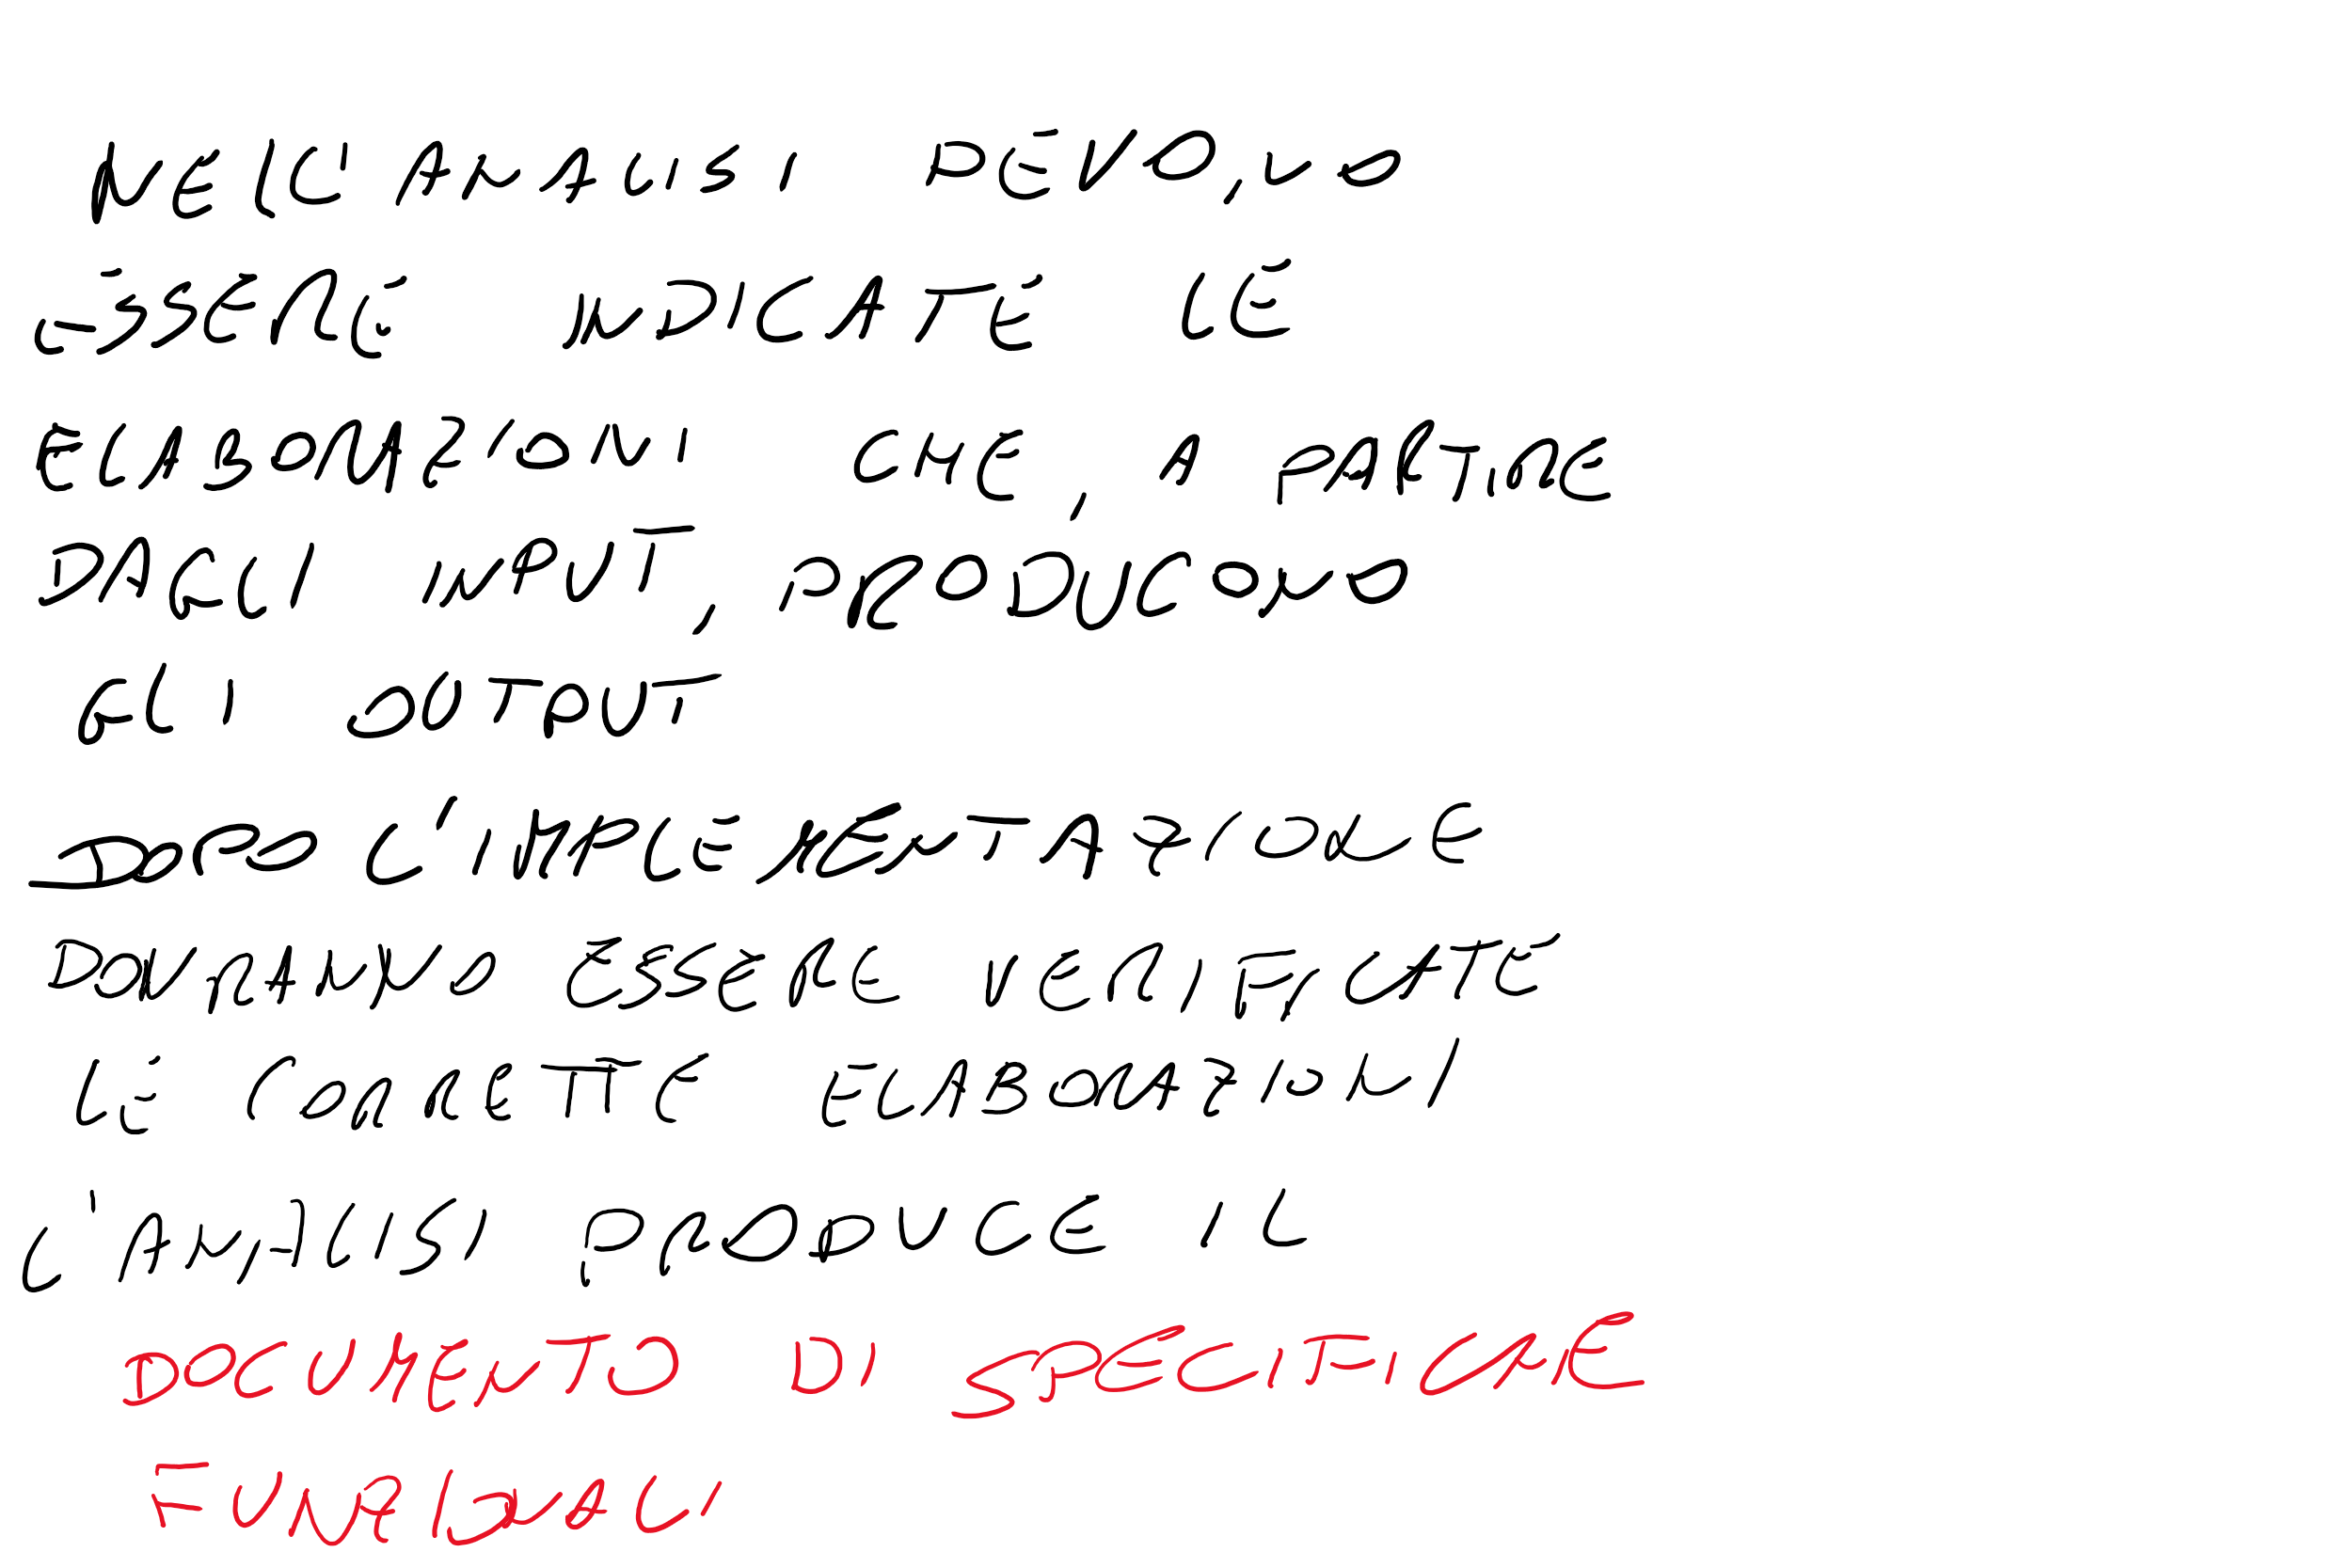 NELL'ANALISI DEVONO
ESSERE INDICATE LE
ELABORAZIONI CHE, A PARTIRE
DAGLI INPUT, PRODUCONO
GLI OUTPUT
DOPO L'IMPLEMENTAZIONE
DOVRANNO ESSERE VERIFICATE
LE CORRETTE ELABORAZIONI
L'ANALISI PRODUCE IL
DOCUMENTO DI SPECIFICHE
FUNZIONALI